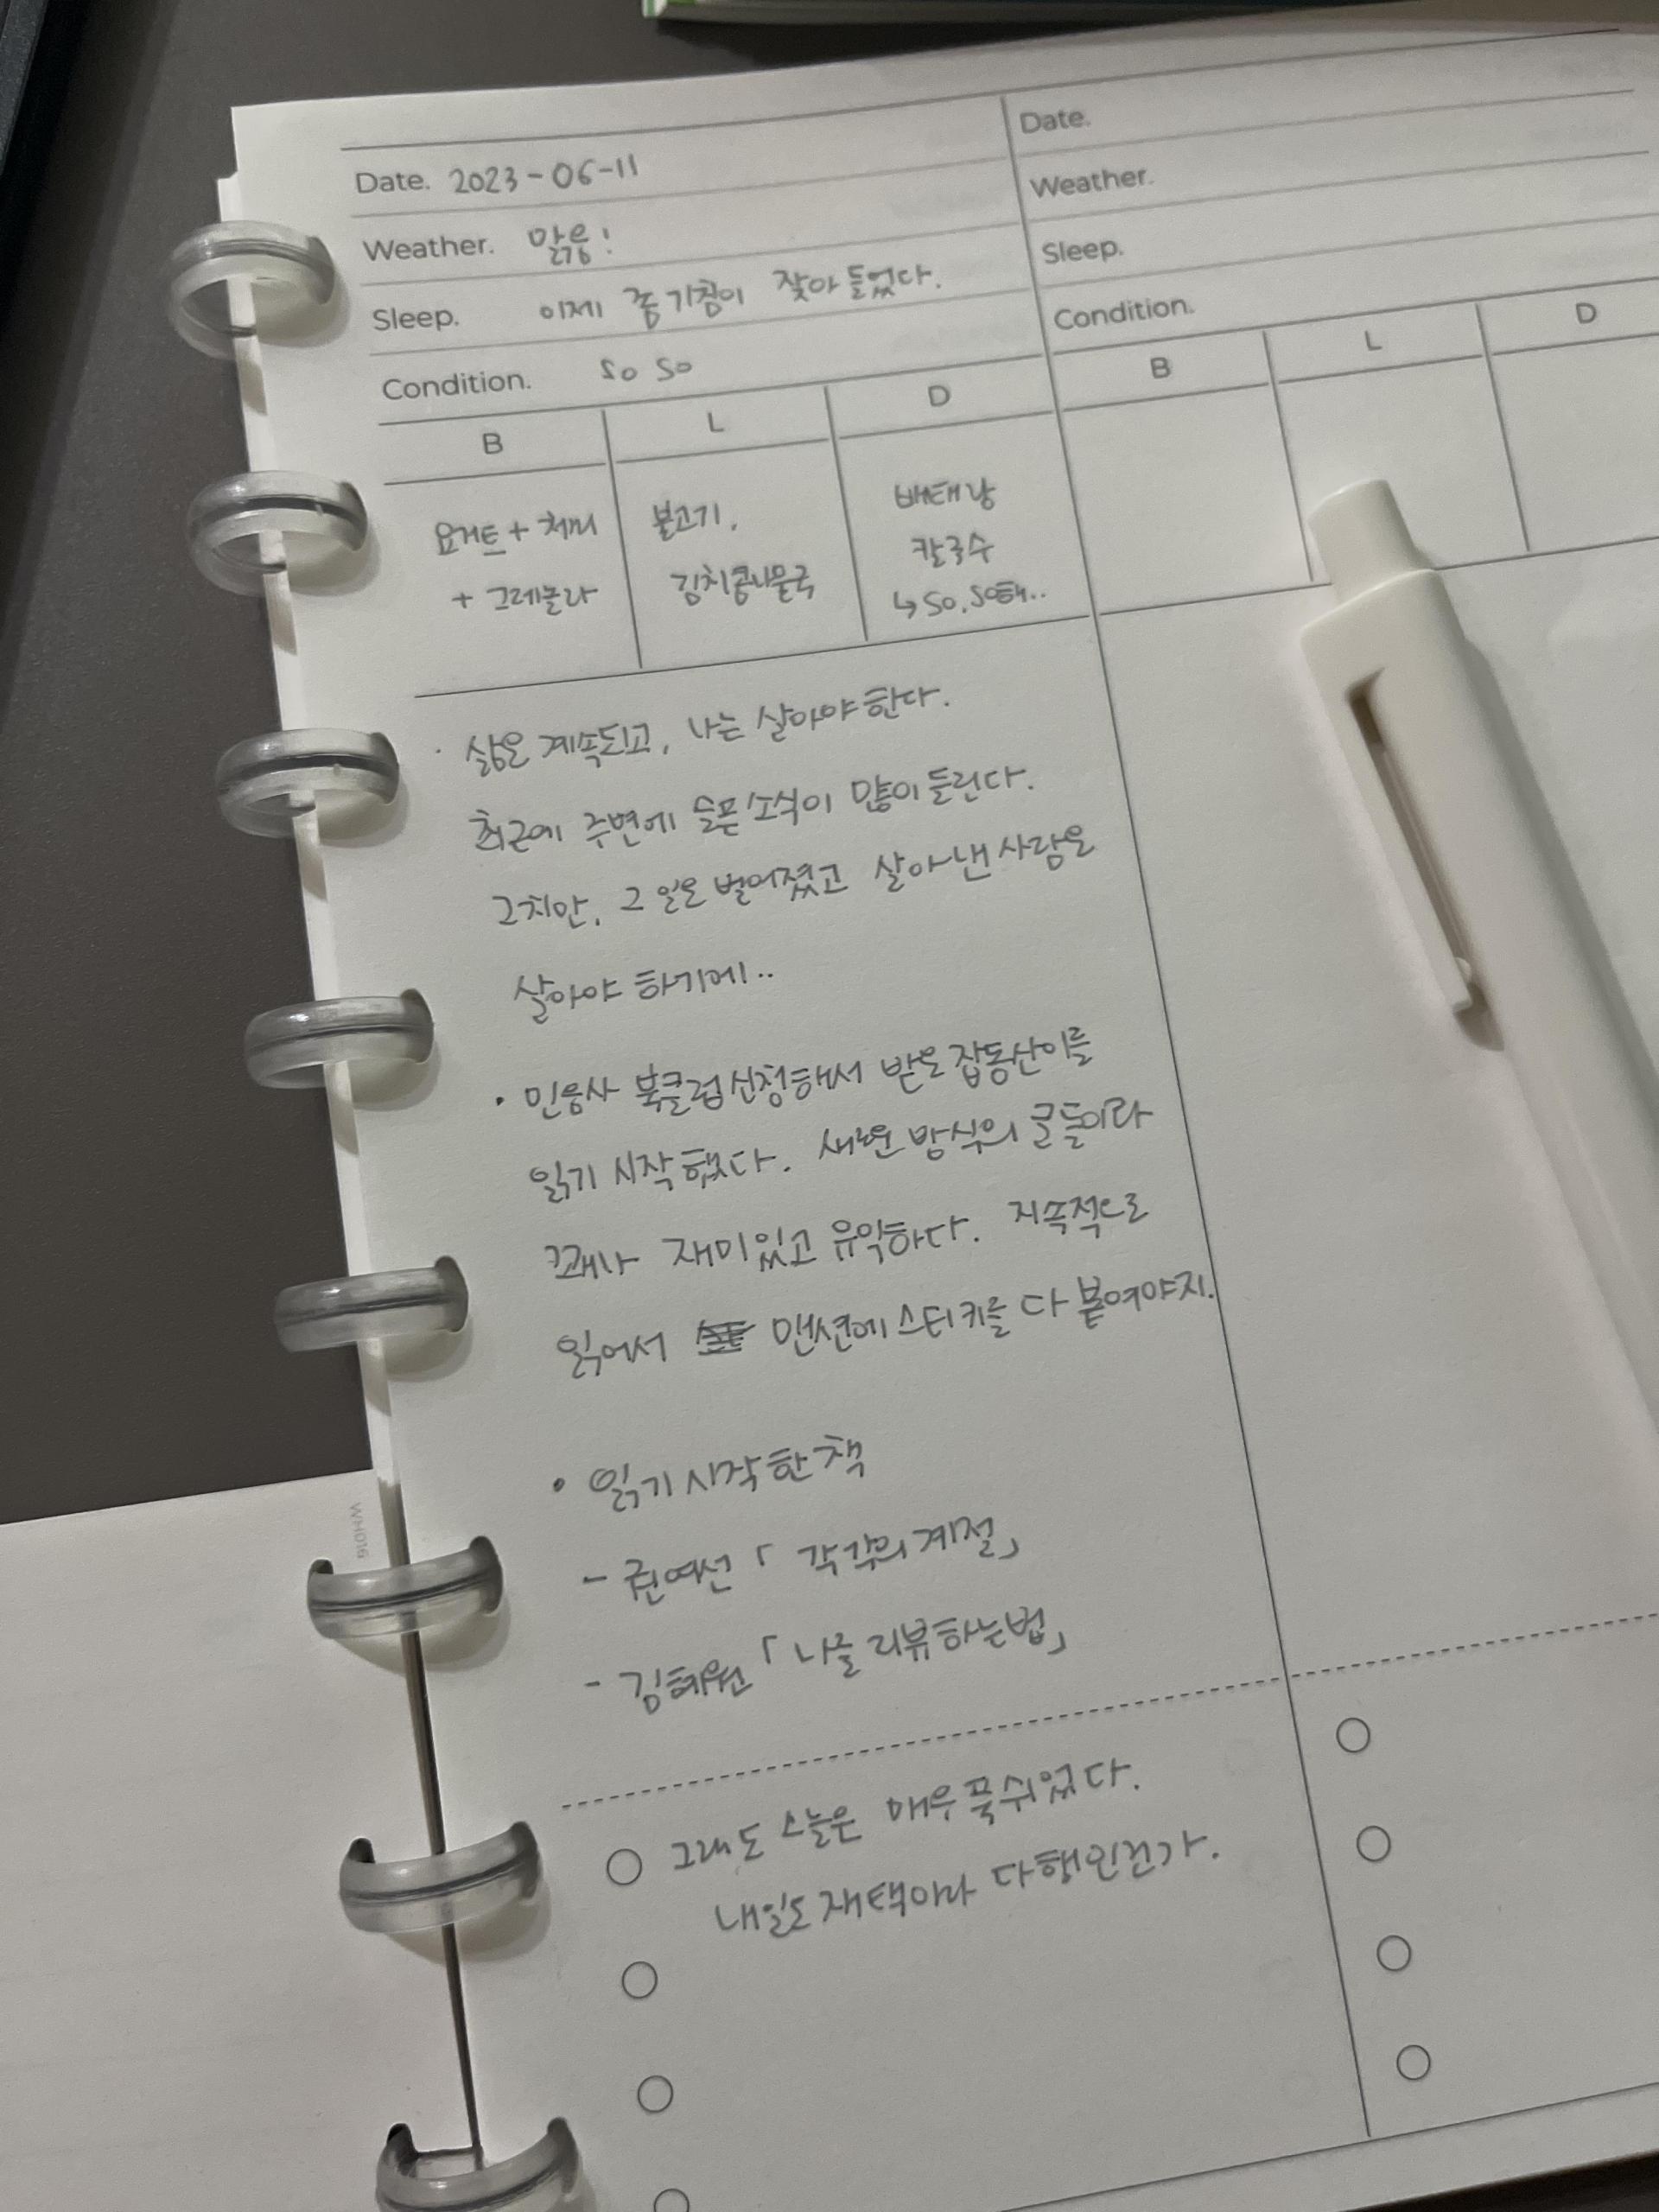 Date. 2023-06-11
Weather. 맑음!
Sleep. 이제 좀 기침이 잦아 들었다.
Condition. so so
B L D
요거트 + 체리
+ 그래놀라
불고기,
김치콩나물국
배태랑
칼국수
↳ so, so해..
· 삶은 계속되고, 나는 살아야 한다.
최근에 주변에 슬픈 소식이 많이 들린다.
그치만, 그 일은 벌어졌고 살아낸 사람은
살아야 하기에..
· 민음사 북클럽 신청해서 받은 잡동산이를
읽기 시작했다. 새로운 방식의 글들이라
꽤나 재미있고 유익하다. 지속적으로
읽어서 맨션에 스티커를 다 붙여야지.
· 읽기 시작한 책
- 권여선 「각각의 계절」
- 김혜원 「나를 리뷰하는 법」
그래도 오늘은 매우 푹 쉬었다.
내일도 재택이라 다행인건가.
Date.
Weather.
Sleep.
Condition.
B L D
WH016